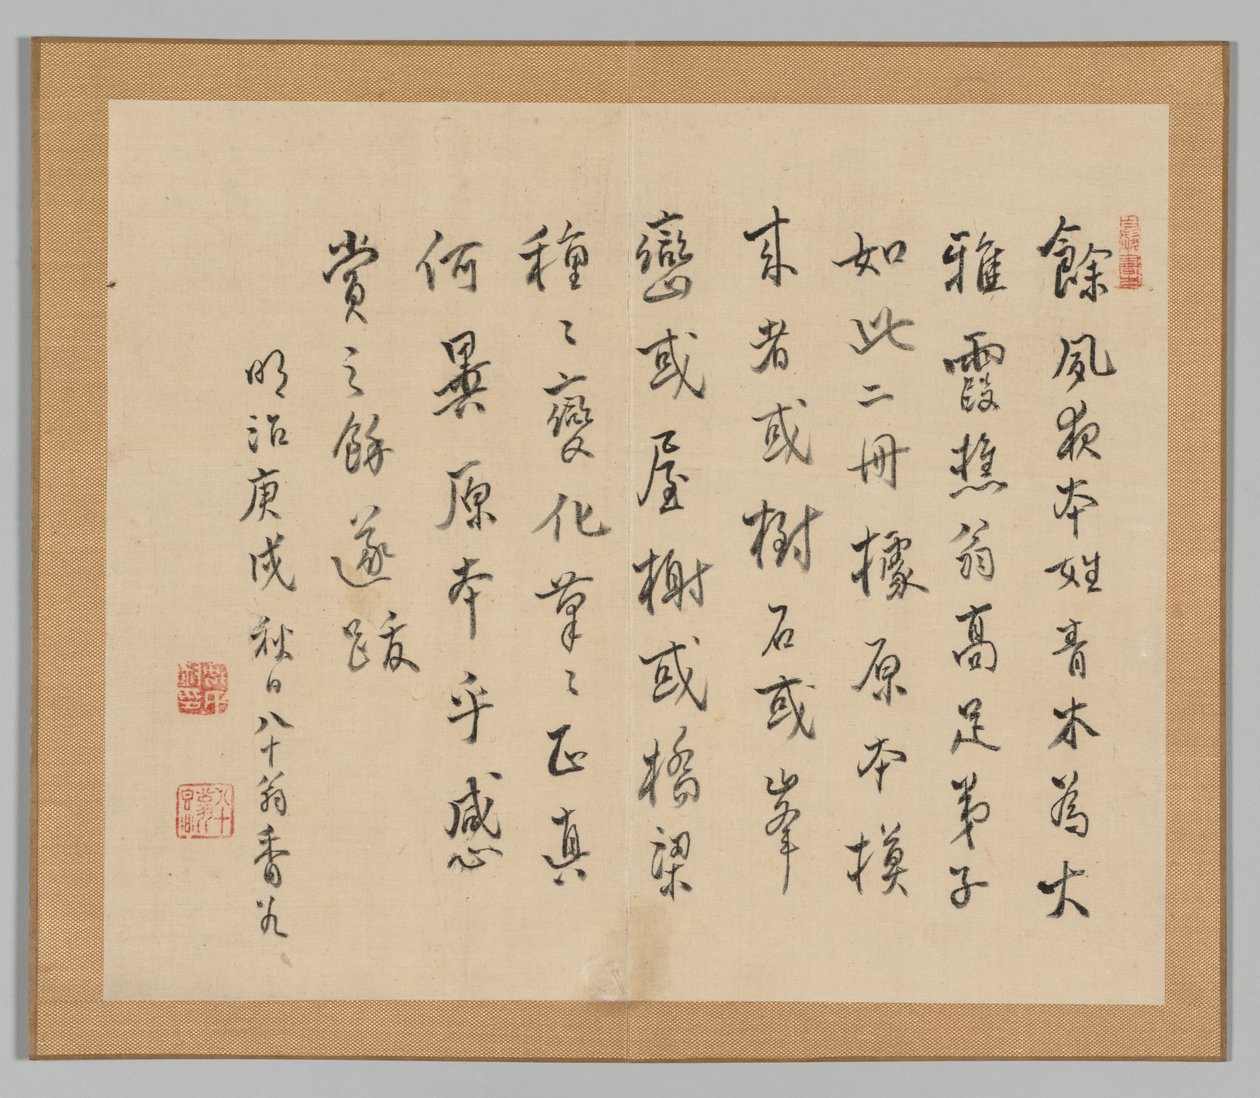 餘夙夜本姓青木為大
雅霞樵翁高足弟子
如此二冊據原本模
来者或樹石或峯
巒或屋榭或橋梁
種〻變化筆〻正真
何異原本乎感
賞之餘遂跋
明治庚戌秋日八十翁香谷